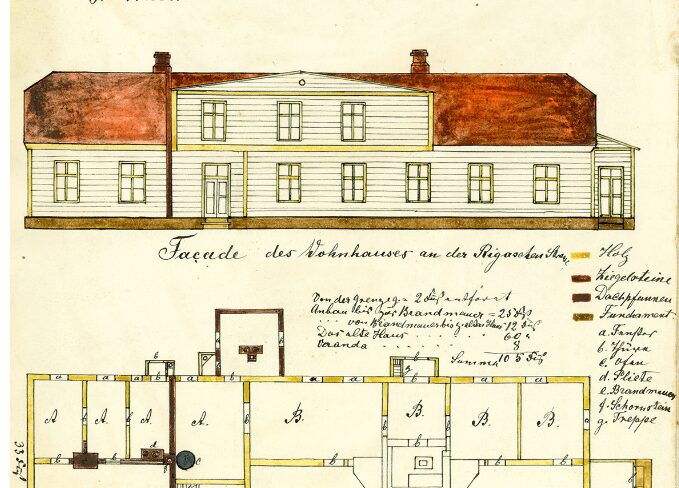 Façade des Wohnhauses an der Rigaschen Strasse
Holz
Ziegelsteine
Dachpfannen
Fundament
Von der Grenze = 2 Fuß entfernt
Anbau bis zur Brandmauer = 25 Fuß
" " von Brandmauer bis z. alten Haus 12 Fuß
Das alte Haus . . . . . . 60 "
Veranda . . . . . . 8
Summa 105 Fuß
a. Fenster
b. Thüren
c. Ofen
d. Pliete
e. Brandmauer
f. Schornstein
g. Treppe
A. A. A. A. B. B. B. B.